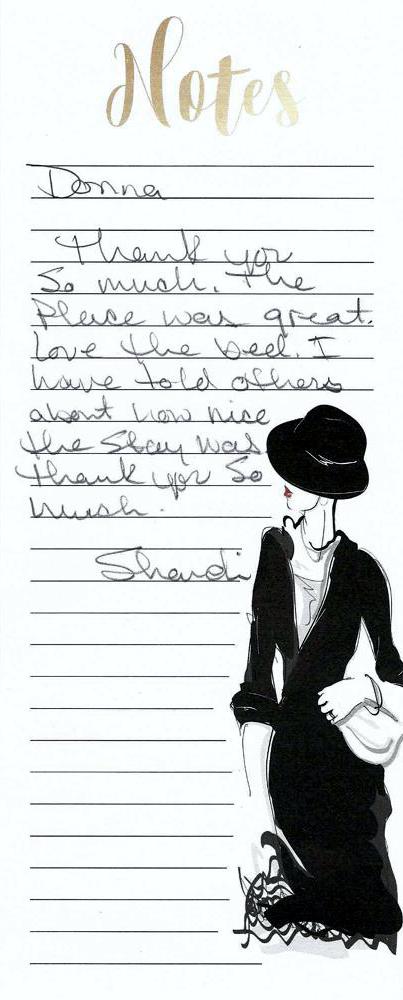 Notes
Donna
Thank you
So much. The
Place was great.
Love the bed. I
have told others
about how nice
the Stay was.
Thank you So
much.
Shandi